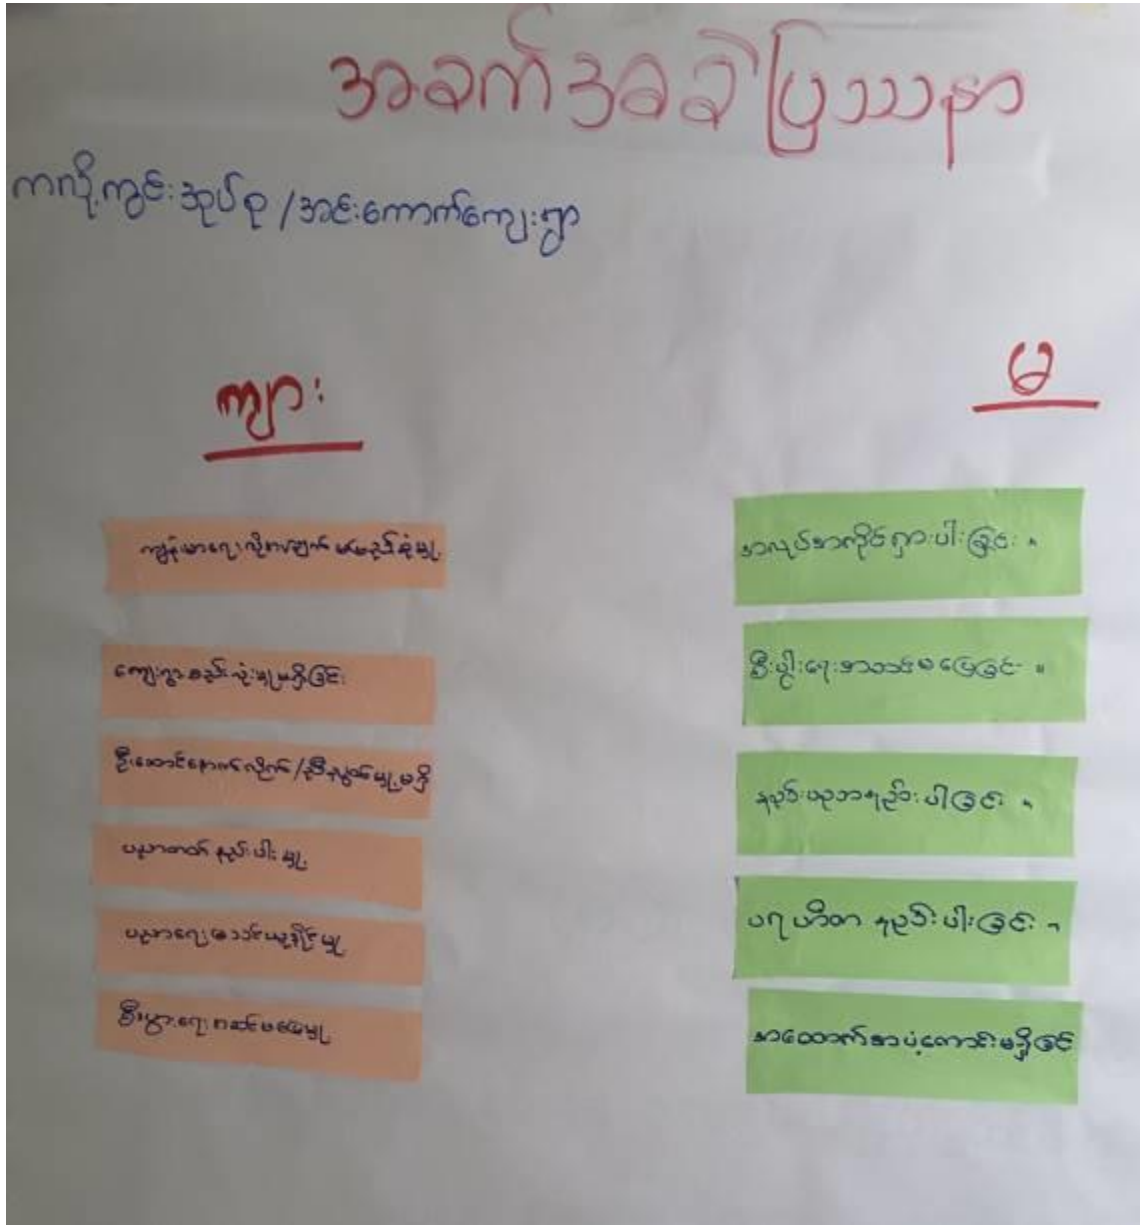 အခက်အခဲပြဿနာ
ကလို့ကွင်းအုပ်စု/အင်းကောက်ကျေးရွာ
ကျား
ကျန်းမာရေးလိုအပ်ချက် မပြည့်စုံမှု
ကျေးရွာစည်းလုံးမှုမရှိခြင်း
ဦးဆောင်နောက်လိုက်/ညီညွတ်မှုမရှိ
ပညာတတ် နည်းပါးမှု
ပညာရေးမသင်ယူနိုင်မှု
စီးပွားရေးအဆင်မပြေမှု
မ
အလုပ်အကိုင်ရှားပါးခြင်း။
စီးပွါးရေးအဆင်မပြေခြင်း။
နည်းပညာနည်းပါခြင်း။
ပရဟိတနည်းပါးခြင်း။
အထောက်အပံ့ကောင်းမရှိခြင်